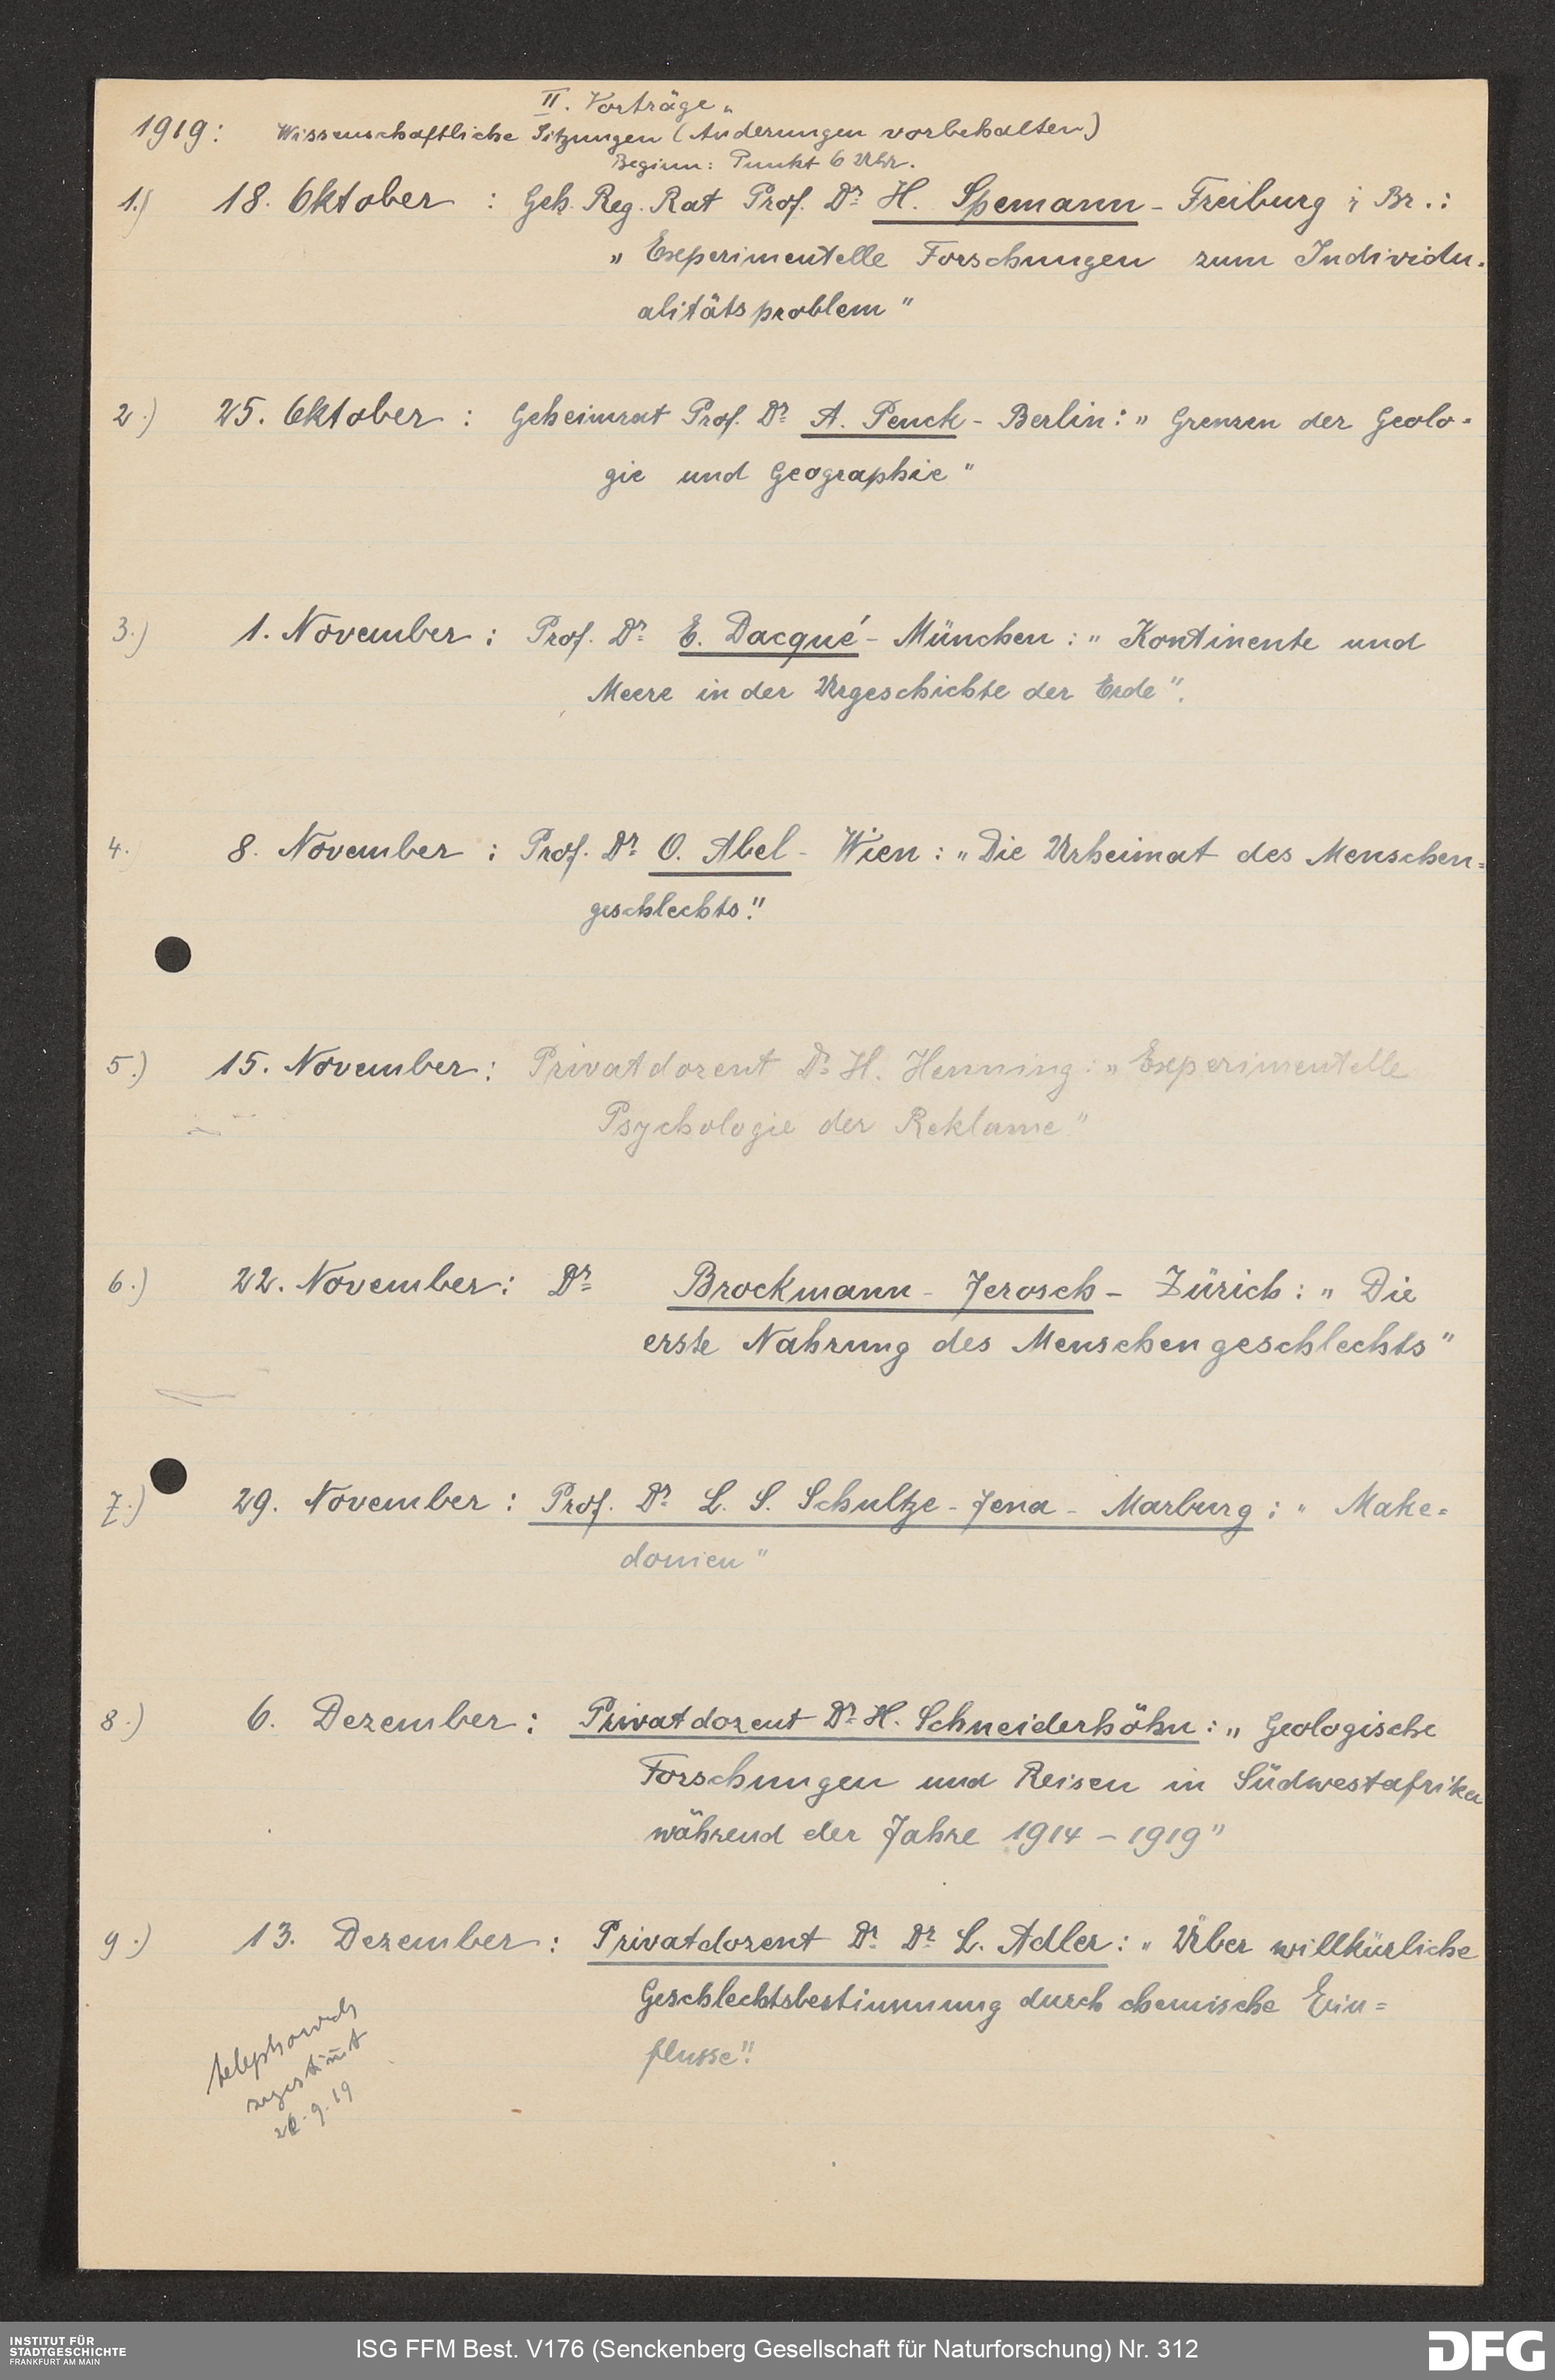 II. Vorträge"
1919: Wissenschaftliche Sitzungen (Änderungen vorbehalten)
Beginn: Punkt 6 Uhr.
1.) 18. Oktober : Geh. Reg. Rat Prof. Dr H. Spemann - Freiburg i Br.:
„Experimentelle Forschungen zum Individu-
alitätsproblem"
2.) 25. Oktober : Geheimrat Prof. Dr A. Penck - Berlin: „Grenzen der Geolo-
gie und Geographie"
3.) 1. November : Prof. Dr E. Dacqué - München : „Kontinente und
Meere in der Urgeschichte der Erde".
4. 8. November : Prof. Dr O. Abel - Wien : „Die Urheimat des Menschen-
geschlechts."
5.) 15. November : Privatdozent Dr H. Henning : „Experimentelle
Psychologie der Reklame"
6.) 22. November : Dr Brockmann - Jerosch - Zürich : „Die
erste Nahrung des Menschengeschlechts"
7.) 29. November : Prof. Dr L. S. Schultze - Jena - Marburg : „Make-
donien"
8.) 6. Dezember : Privatdozent Dr H. Schneiderhöhn : „Geologische
Forschungen und Reisen in Südwestafrika
während der Jahre 1914 - 1919"
9.) 13. Dezember : Privatdozent Dr Dr L. Adler : „Über willkürliche
Geschlechtsbestimmung durch chemische Ein=
flüsse".
telephonisch
zugestimt
.9.19
INSTITUT FÜR
STADTGESCHICHTE
FRANKFURT AM MAIN
ISG FFM Best. V176 (Senckenberg Gesellschaft für Naturforschung) Nr. 312
DFG